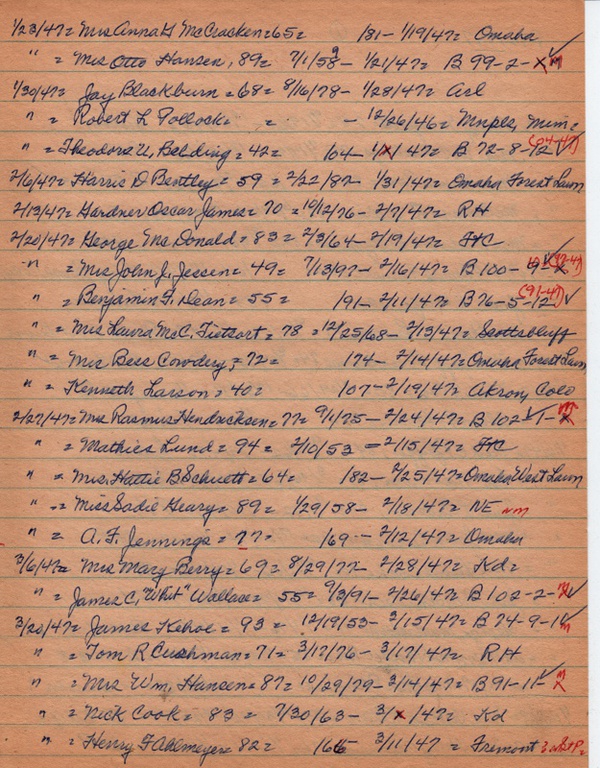 1/23/47= Mrs Anna H McCracken=65= /81- 1/19/47= Omaha
" = Mrs Otto Hansen, 89= 7/1/58- 1/21/47= B 99-2-x m
1/30/47= Jay Blackburn=68= 8/16/78- 1/28/47= Arl
" = Robert L Pollock= = - 12/26/46= Mnpls, Minn=
" = Theodora U, Belding= 42= /04- 1/x/47= B 72-8-12 (04-47)
2/6/47= Harris D Bentley= 59 = 2/22/87- 1/31/47= Omaha Forest Lawn
2/13/47= Gardner Oscar James= 70 = 10/12/76- 2/7/47= RH
2/20/47= George McDonald= 83= 2/3/64- 2/19/47= HC
" = Mrs John J, Jessen= 49= 7/13/97- 2/16/47= B 100-9-x
" = Benjamin F. Dean= 55= /91- 2/11/47= B 76-5-12 (91-47)
" = Mrs Laura McC, Tietsort= 78 = 12/25/68- 2/13/47= Scottsbluff
" = Mrs Bess Cowdery,= 72= /74- 2/14/47= Omaha Forest Lawn
" = Kenneth Larson= 40= /07- 2/19/47= Akron, Colo
2/27/47= Mrs Rasmus Hendricksen= 77= 9/1/75- 2/24/47= B 102-1-x m
" = Mathies Lund= 94= 2/10/53 = 2/15/47= HC
" = Mrs, Hattie B Schuett= 64= /82- 2/25/47= Omaha, West Lawn
" = Miss Sadie Geary= 89= 1/29/58- 2/18/47= NE nm
" = A. F. Jennings= 77= /69- 2/12/47= Omaha
3/6/47= Mrs Mary Berry= 69= 8/29/77- 2/28/47= Kd=
" = James C, "Whit" Wallace= 55= 9/3/91- 2/26/47= B 102-2-x m
3/20/47= James Kehoe= 93= 12/19/53- 3/15/47= B 74-9-1 m
" = Tom R Cushman= 71= 3/17/76- 3/17/47= RH
" = Mrs Wm, Hansen= 87= 10/29/79- 3/14/47= B 91-11- m x
" = Nick Cook= 83 = 7/30/63- 3/x/47= Kd
" = Henry F Ahlmeyer= 82= /65 3/11/47 = Fremont